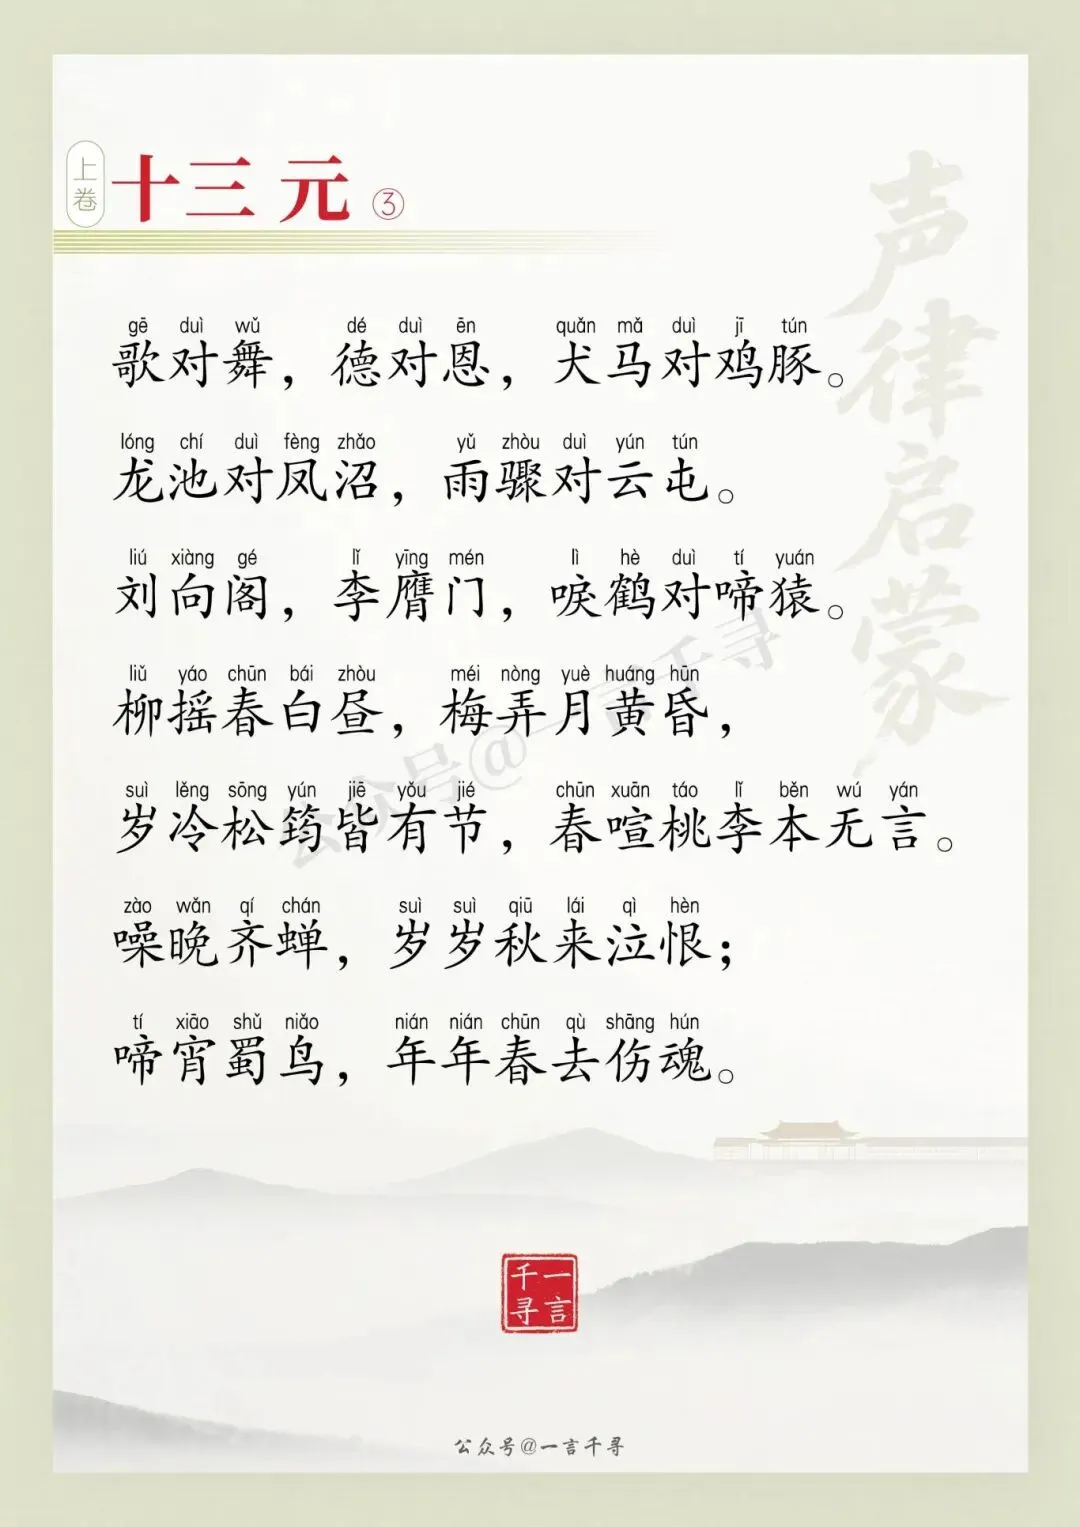 上卷
十三元③
声律启蒙
gē duì wǔ dé duì ēn quǎn mǎ duì jī tún
歌对舞，德对恩，犬马对鸡豚。
lóng chí duì fèng zhǎo yǔ zhòu duì yún tún
龙池对凤沼，雨骤对云屯。
liú xiàng gé lǐ yīng mén lì hè duì tí yuán
刘向阁，李膺门，唳鹤对啼猿。
liǔ yáo chūn bái zhòu méi nòng yuè huáng hūn
柳摇春白昼，梅弄月黄昏，
suì lěng sōng yún jiē yǒu jié chūn xuān táo lǐ běn wú yán
岁冷松筠皆有节，春喧桃李本无言。
zào wǎn qí chán suì suì qiū lái qì hèn
噪晚齐蝉，岁岁秋来泣恨；
tí xiāo shǔ niǎo nián nián chūn qù shāng hún
啼宵蜀鸟，年年春去伤魂。
公众号@一言千寻
一言千寻
公众号@一言千寻